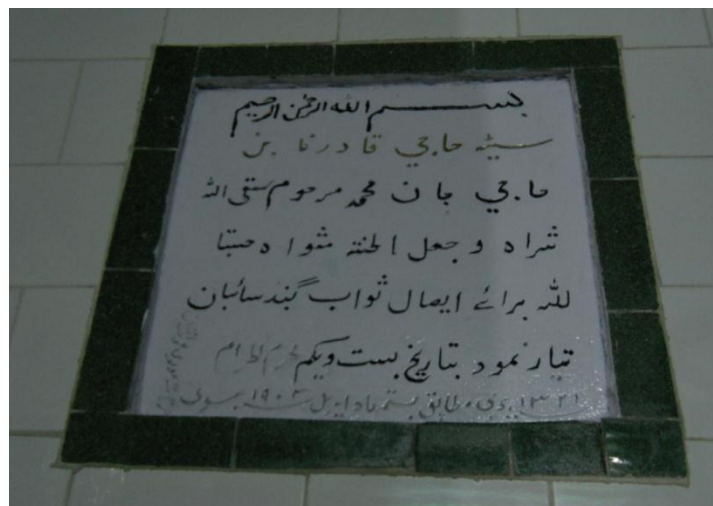 بسم الله الرحمن الرحیم
سیٹھ حاجي قادرنا بن
حاجي جان محمد مرحوم سقی الله
ثراه وجعل الجنة مثواه حسبتا
لله برائے ایصال ثواب گنبد سائبان
تیار نمود بتاریخ بست ویکم محرم الحرام
۱۳۲۱ مطابق بستم ماه اپریل سنه ۱۹۰۳